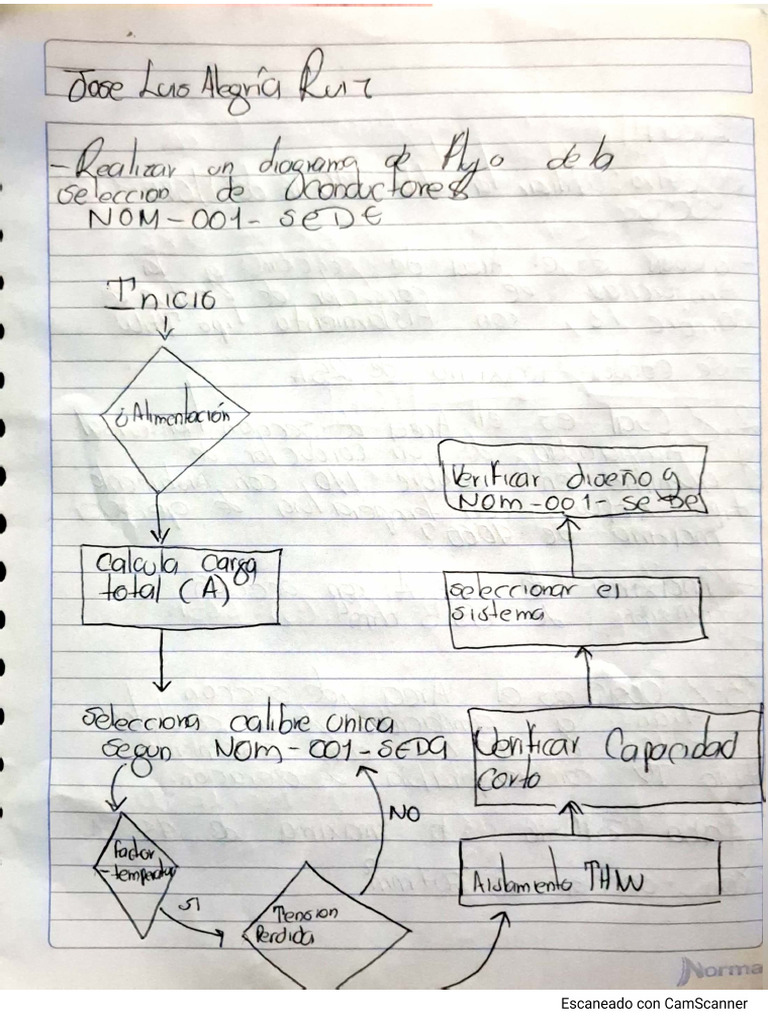 Jose Luis Alegría Ruiz
- Realizar un diagrama de flujo de la
seleccion de conductores
NOM-001-SEDE
Inicio
¿Alimentación
Calcula carga
total (A)
selecciona calibre unica
segun NOM-001-SEDA
Factor
-temperatur
SI
Tension
Perdida
NO
Aislamiento THW
Verificar Capacidad
corto
seleccionar el
sistema
Verificar diseño y
NOM-001-SEDE
Norma
Escaneado con CamScanner